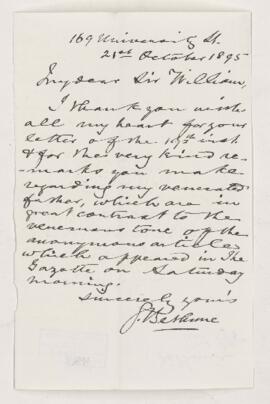 169 University St.
21st October 1895
My dear Sir William,
I thank you with
all my heart for your
letter of the 19th inst
& for the very kind re-
-marks you make
regarding my venerated
father, which are in
great contrast to the
venomous tone of the
anonymous article
which appeared in The
Gazette on Saturday
morning.
Sincerely yours
J. Bethune